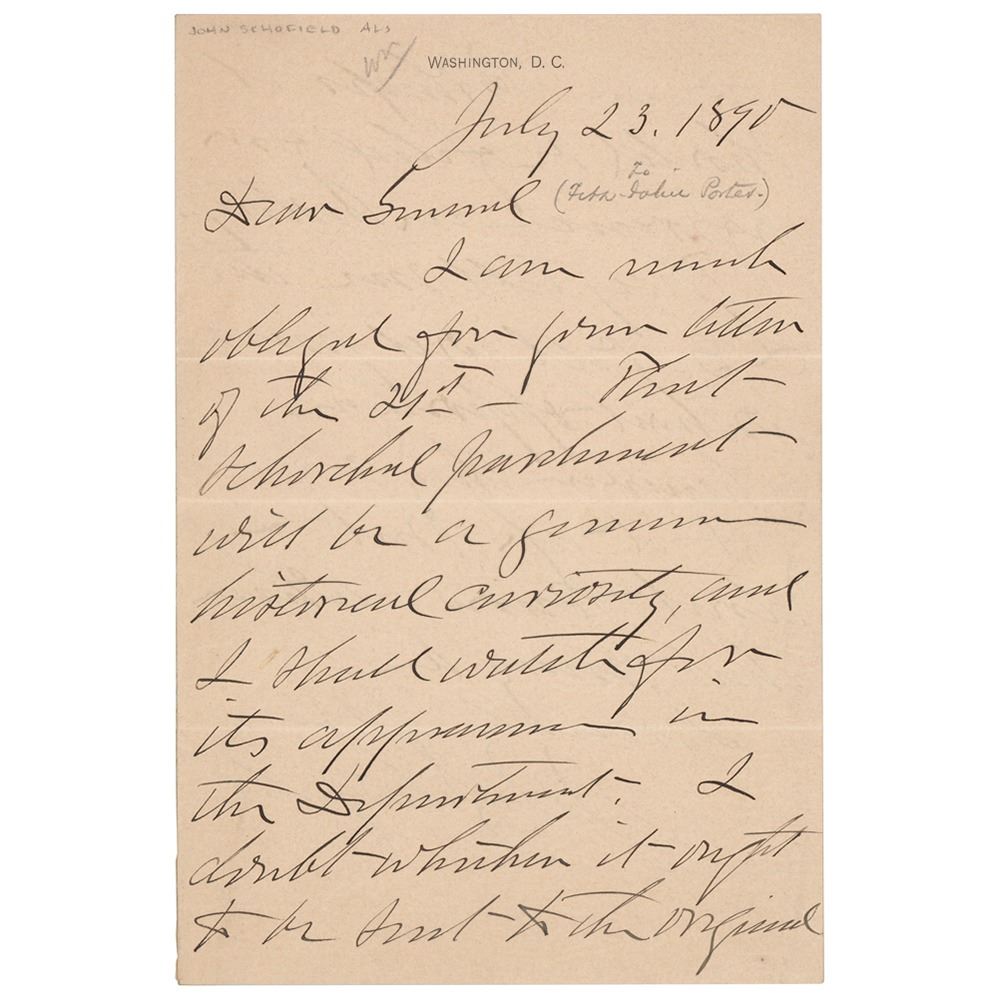 JOHN SCHOFIELD ALS
WASHINGTON, D. C.
July 23. 1890
To
(Fitz John Porter.)
Dear General
I am much
obliged for your letter
of the 21st — That
scorched parchment
will be a genuine
historical curiosity, and
I shall watch for
its appearance in
the Department. I
doubt whether it ought
to be sent to the original